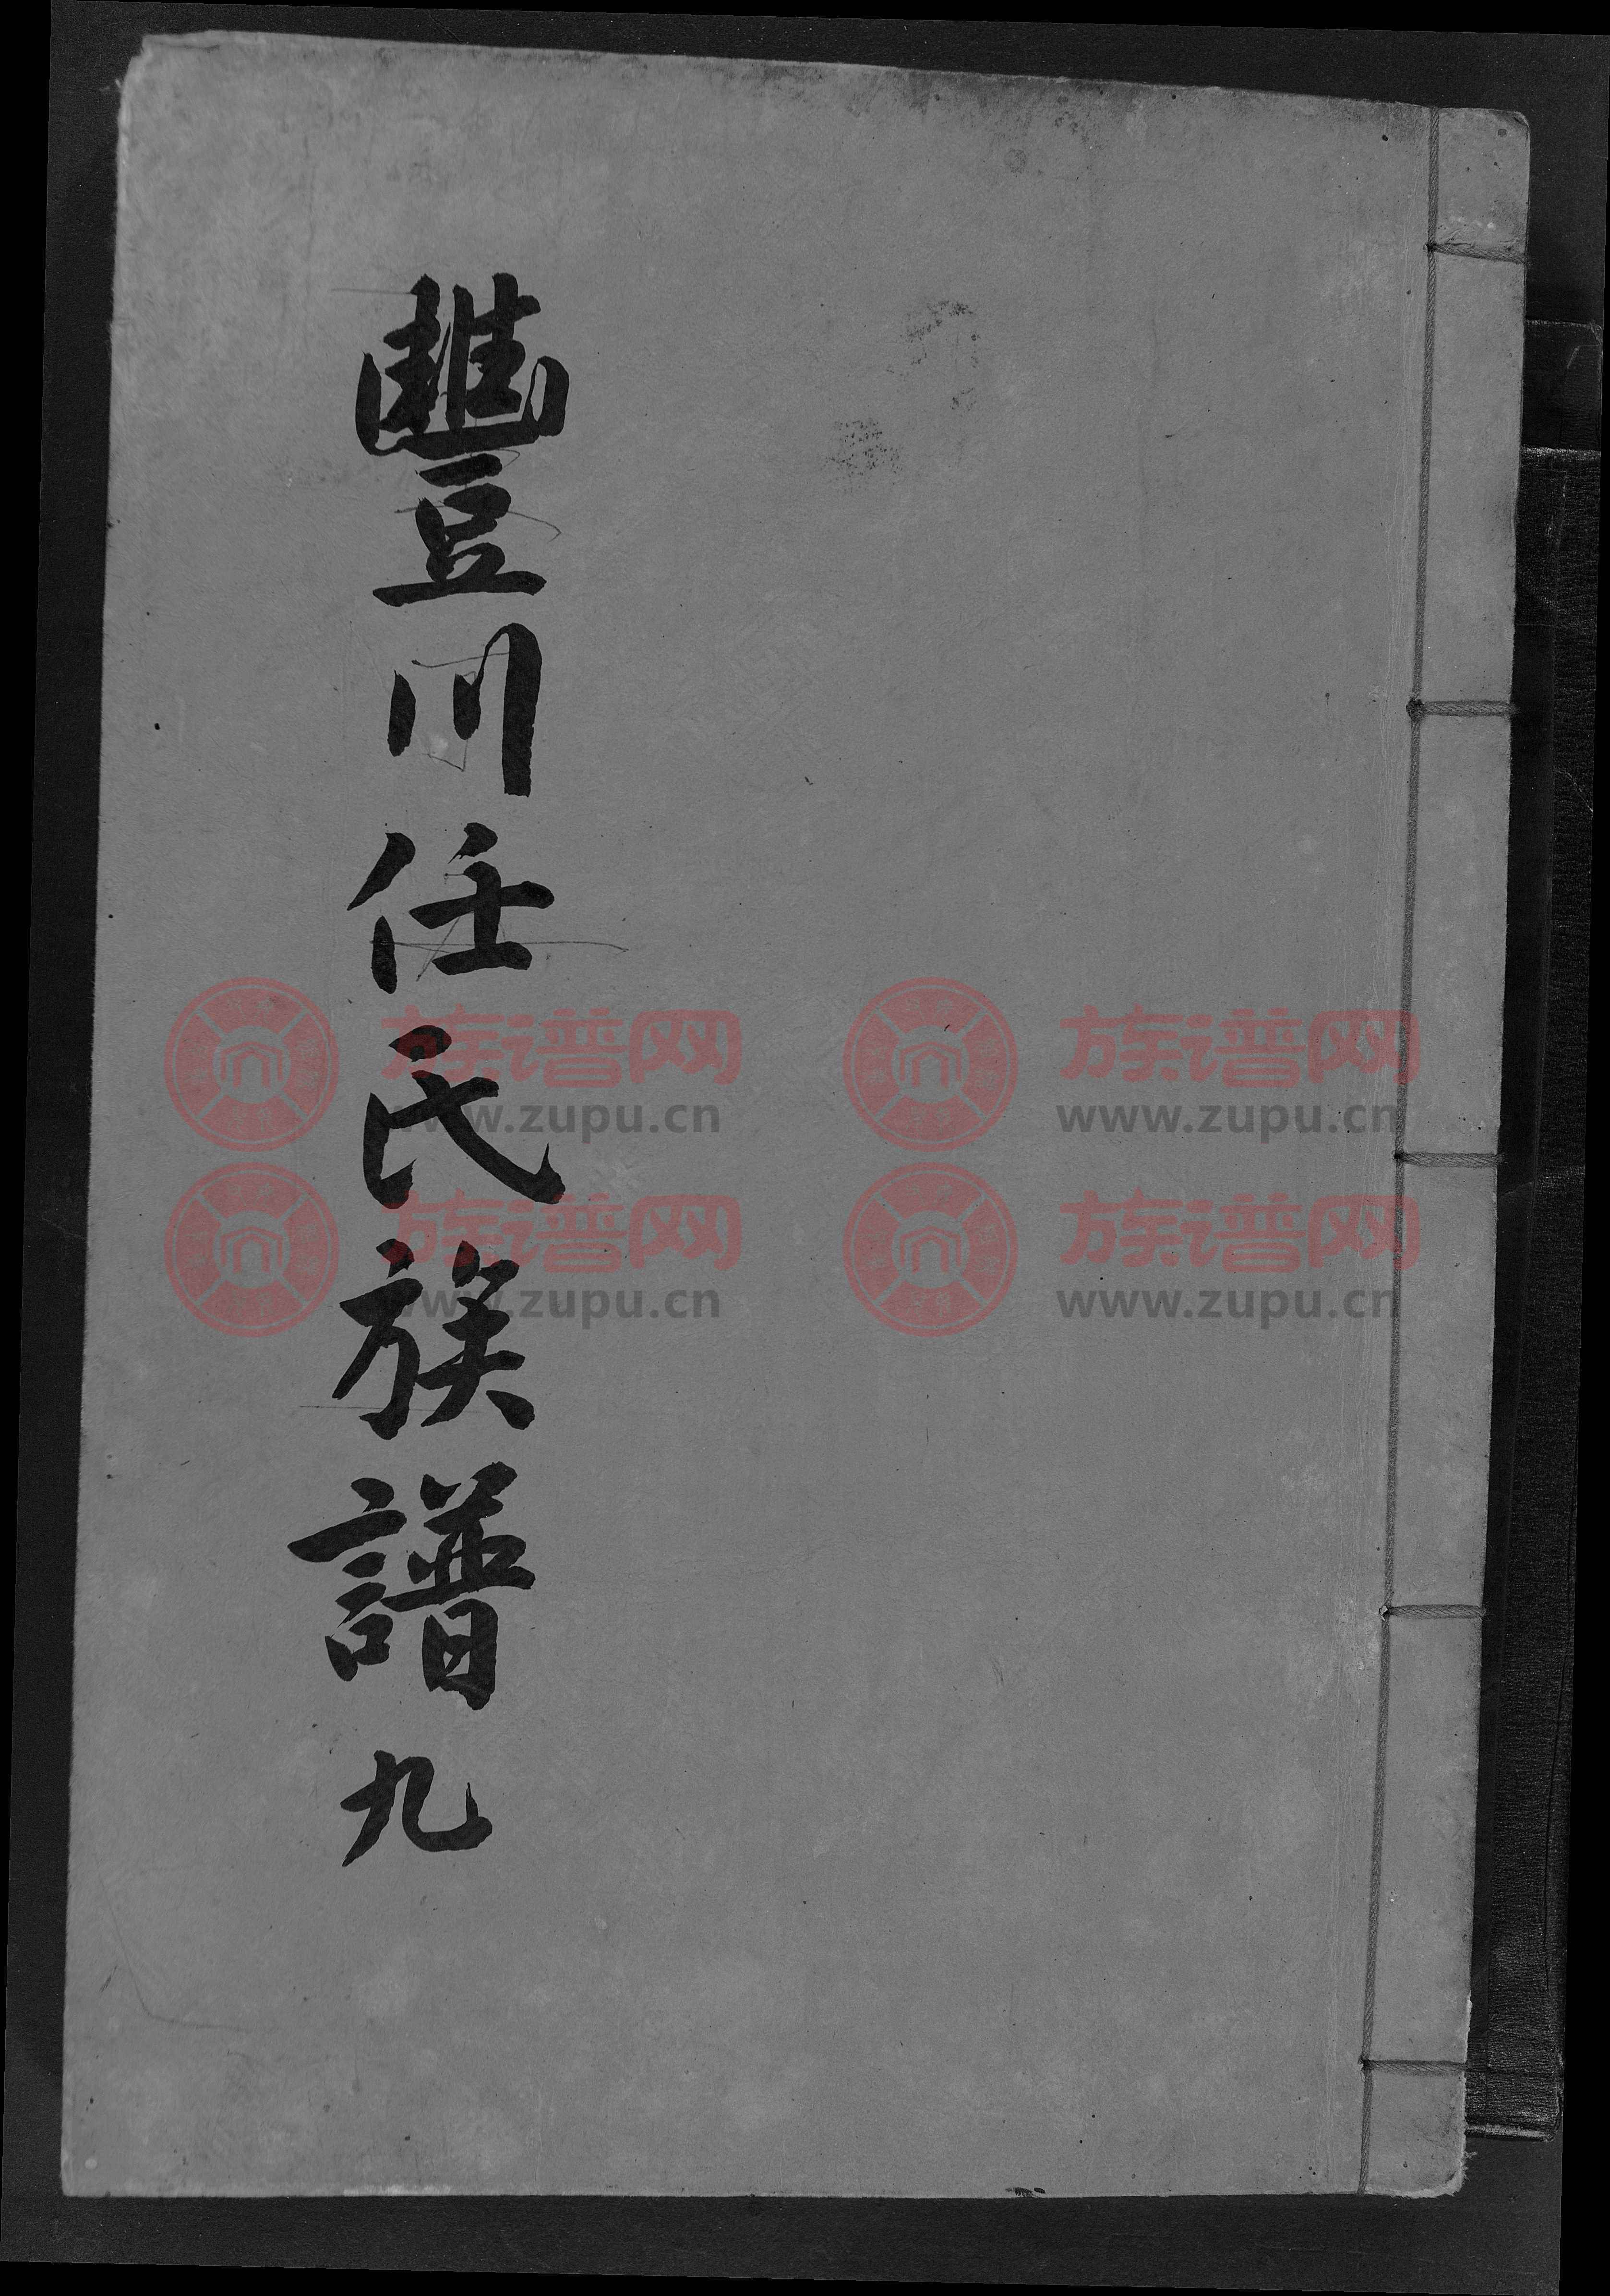 豐川任氏族譜 九
族谱网 www.zupu.cn
族谱网 www.zupu.cn
族谱网 www.zupu.cn
族谱网 www.zupu.cn